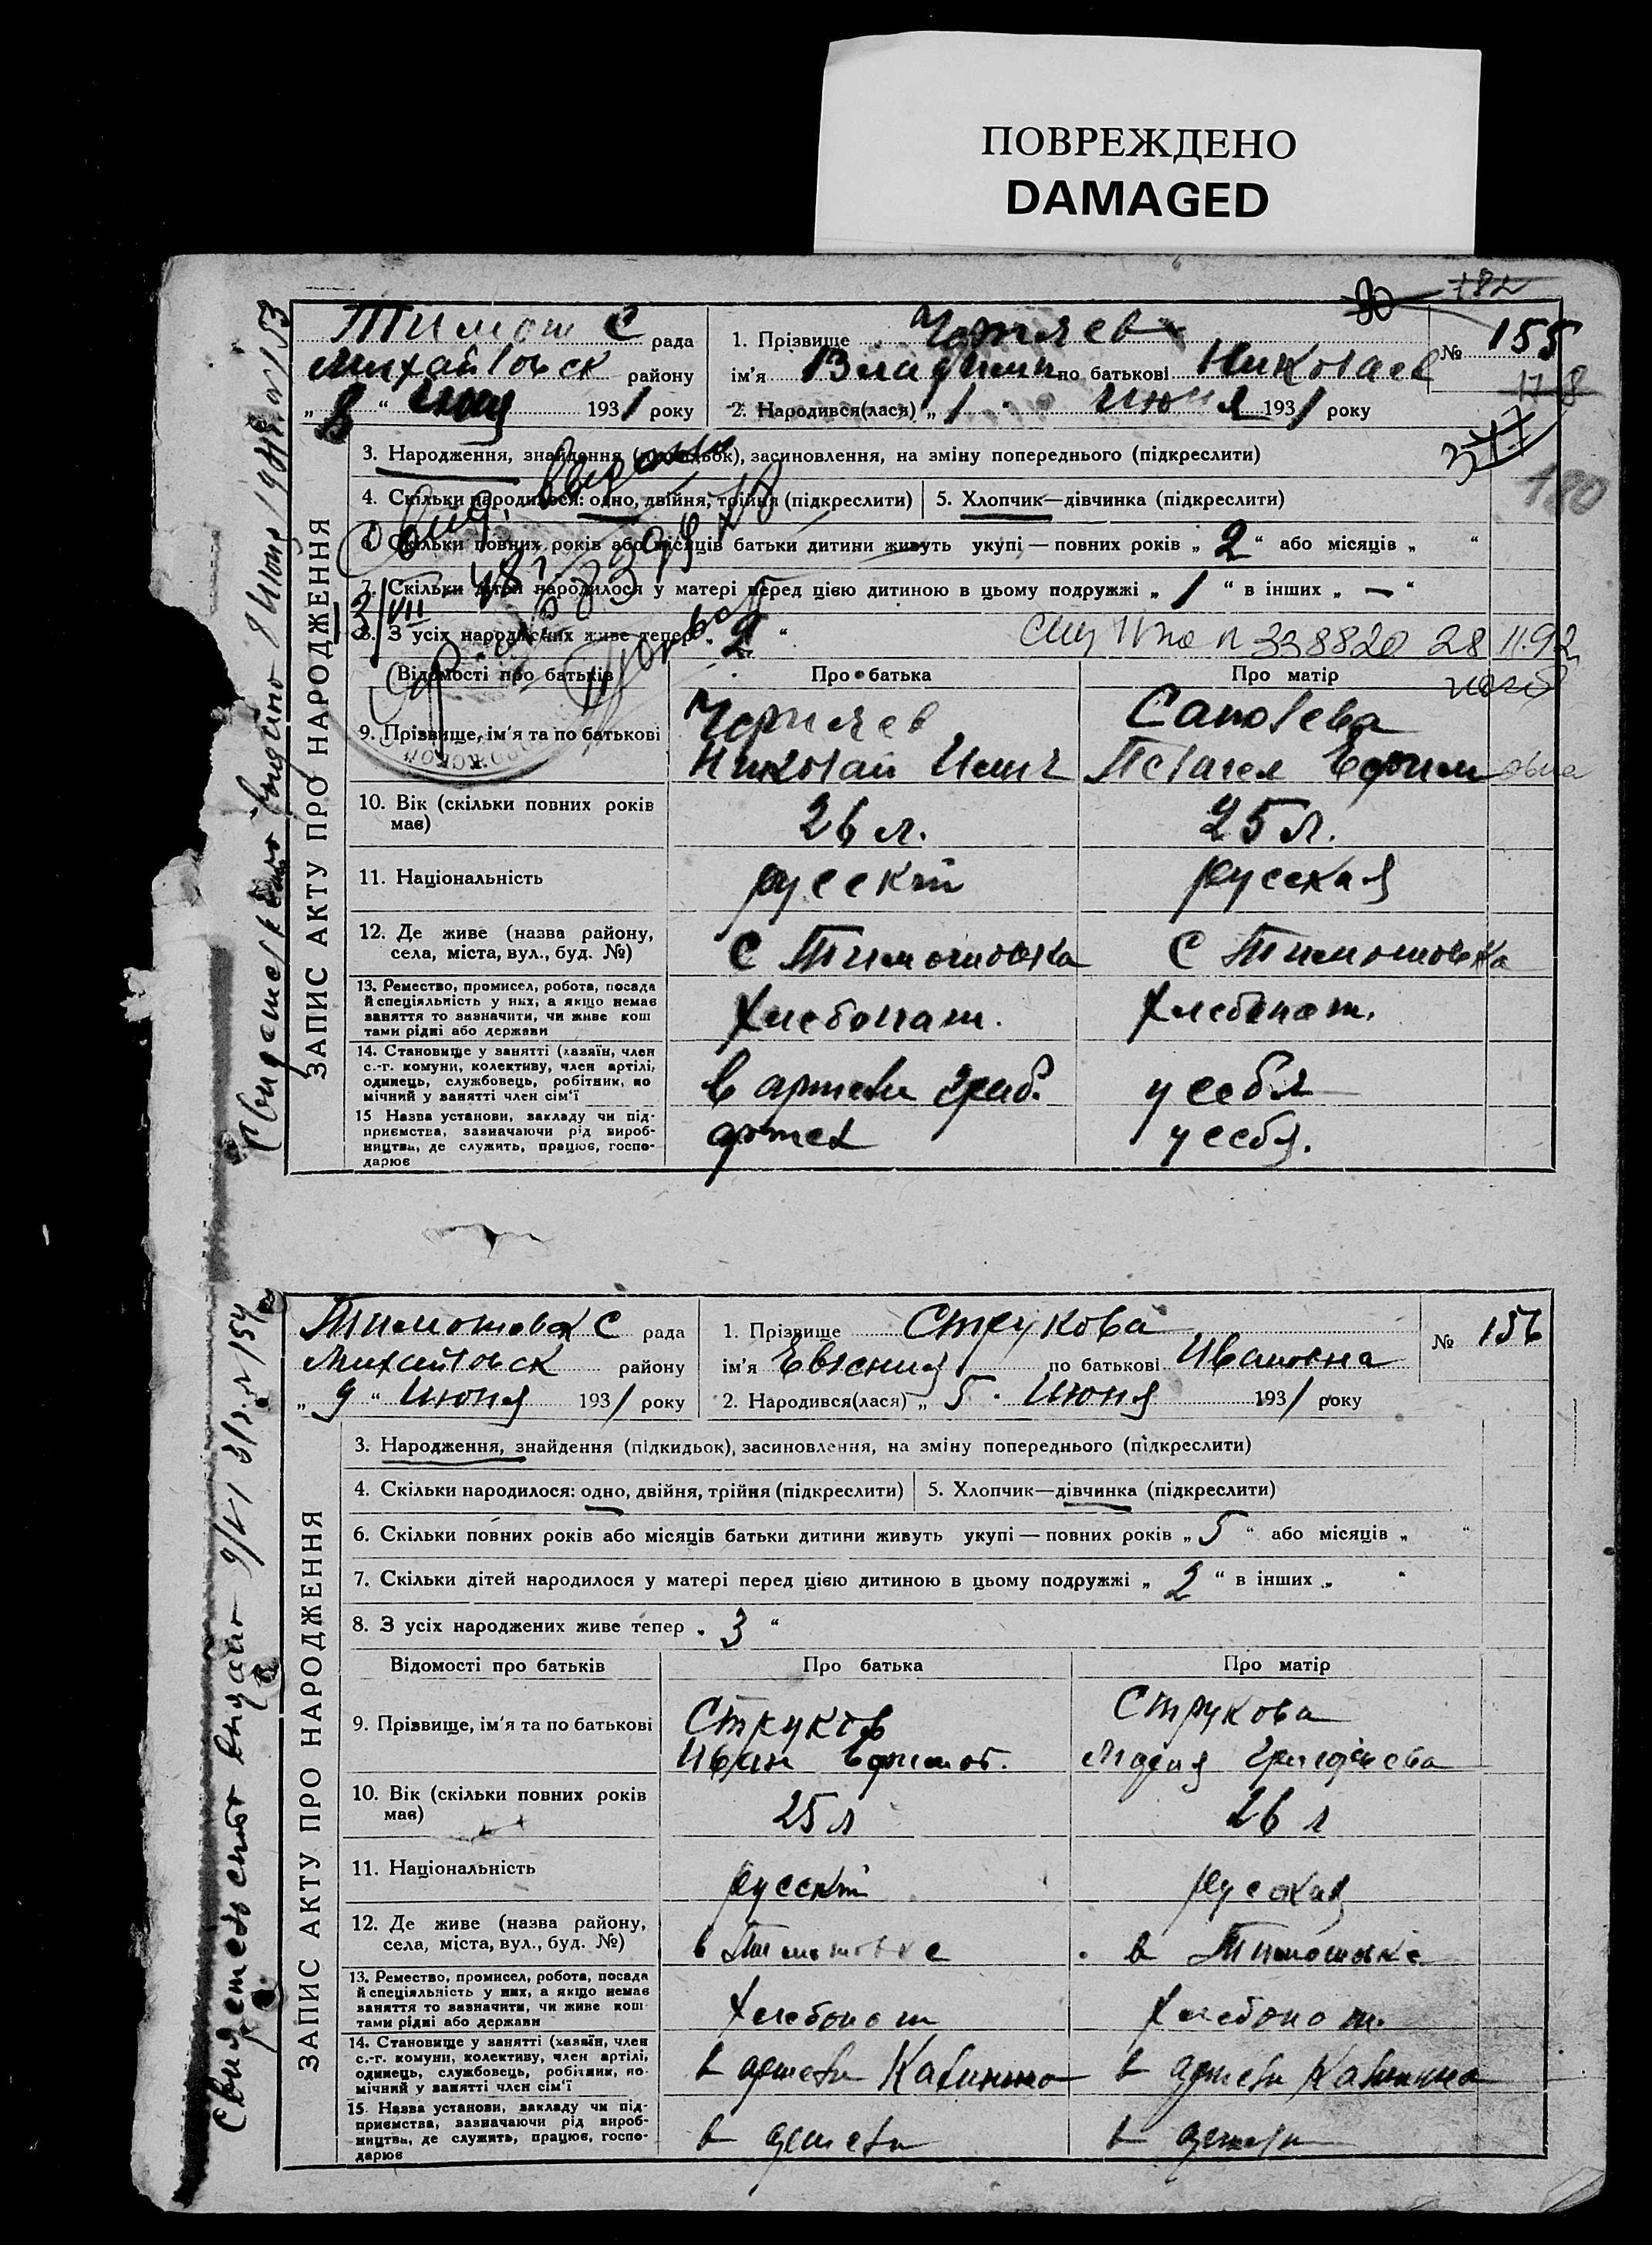 ПОВРЕЖДЕНО
DAMAGED
182
30
Тимош С рада
Михайловск району
„ 8 “ 1931 року
1. Прізвище
ім'я Владимир по батькові Николаев
2. Народився(лася) „ 1 “ Июня 1931 року
№ 155
178
180
ЗАПИС АКТУ ПРО НАРОДЖЕННЯ
3. Народження, знайдення (підкидьок), засиновлення, на зміну попереднього (підкреслити)
4. Скільки народилося: одно, двійня, трійня (підкреслити)
5. Хлопчик—дівчинка (підкреслити)
6. Скільки повних років або місяців батьки дитини живуть укупі — повних років „ 2 “ або місяців „ “
7. Скільки дітей народилося у матері перед цією дитиною в цьому подружжі „ 1 “ в інших „ — “
8. З усіх народжених живе тепер „ 2 “
338820 28 11.92
Відомості про батьків
Про батька
Про матір
9. Прізвище, ім'я та по батькові
Николай
Пелагея Ефимовна
10. Вік (скільки повних років має)
26 л.
25 л.
11. Національність
русскій
русская
12. Де живе (назва району, села, міста, вул., буд. №)
С Тимошовка
С Тимошовка
13. Ремество, промисел, робота, посада й спеціяльність у них, а якщо немає заняття то зазначити, чи живе коштами рідні або держави
Хлебопаш.
Хлебопаш.
14. Становище у занятті (хазяїн, член с.-г. комуни, колективу, член артілі, одинець, службовець, робітник, помічний у занятті член сім'ї
в артели
у себя
15 Назва установи, закладу чи підприємства, зазначаючи рід виробництва, де служить, працює, господарює
артел
у себя.
Свидетельство выдано 8 Июня 1931 г. № 153
Тимошовск С рада
Михайловск району
„ 9 “ Июня 1931 року
1. Прізвище Струкова
ім'я Евгения по батькові Ивановна
2. Народився(лася) „ 5 “ Июня 1931 року
№ 156
ЗАПИС АКТУ ПРО НАРОДЖЕННЯ
3. Народження, знайдення (підкидьок), засиновлення, на зміну попереднього (підкреслити)
4. Скільки народилося: одно, двійня, трійня (підкреслити)
5. Хлопчик—дівчинка (підкреслити)
6. Скільки повних років або місяців батьки дитини живуть укупі — повних років „ 5 “ або місяців „ “
7. Скільки дітей народилося у матері перед цією дитиною в цьому подружжі „ 2 “ в інших „ “
8. З усіх народжених живе тепер „ 3 “
Відомості про батьків
Про батька
Про матір
9. Прізвище, ім'я та по батькові
Струков
Иван Ефимов.
Струкова
Мария
10. Вік (скільки повних років має)
25 л
26 л
11. Національність
русскій
русская
12. Де живе (назва району, села, міста, вул., буд. №)
в Тимошовке
в Тимошовке
13. Ремество, промисел, робота, посада й спеціяльність у них, а якщо немає заняття то зазначити, чи живе коштами рідні або держави
Хлебопаш
Хлебопаш.
14. Становище у занятті (хазяїн, член с.-г. комуни, колективу, член артілі, одинець, службовець, робітник, помічний у занятті член сім'ї
в артели Калинина
в артели Калинина
15. Назва установи, закладу чи підприємства, зазначаючи рід виробництва, де служить, працює, господарює
в артели
в артели
Свидетельство выдано 9/VI 31 г. № 154